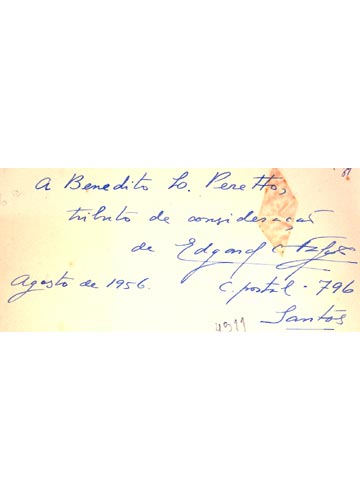 A Benedito L. Perettos,
tributo de consideração
de Edgard C.
Agosto de 1956. C. postal - 796
Santos
4911